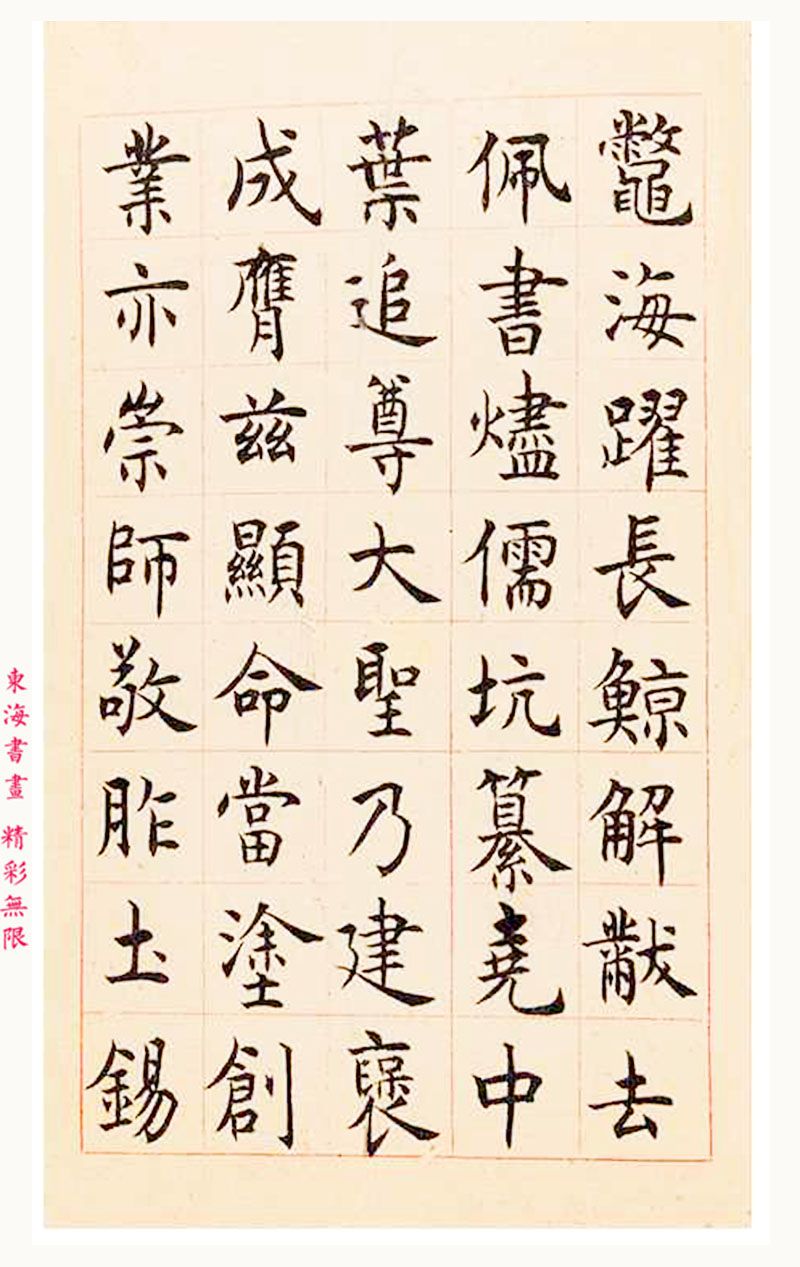 鼈海躍長鯨解黻去
佩書燼儒坑纂堯中
葉追尊大聖乃建褒
成膺茲顯命當塗創
業亦崇師敬胙土錫
東海書畫 精彩無限